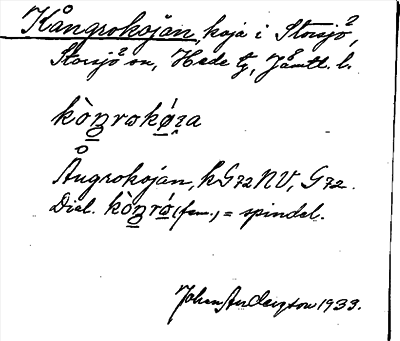 Kångrokojan, koja i Storsjö,
Storsjö sn, Hede tg, Jämtl. l.
kòŋrokǿja
Ångrokojan, k G72 NV, G72.
Dial. kòŋró (fem.) = spindel.
Johan Anderzson 1933.